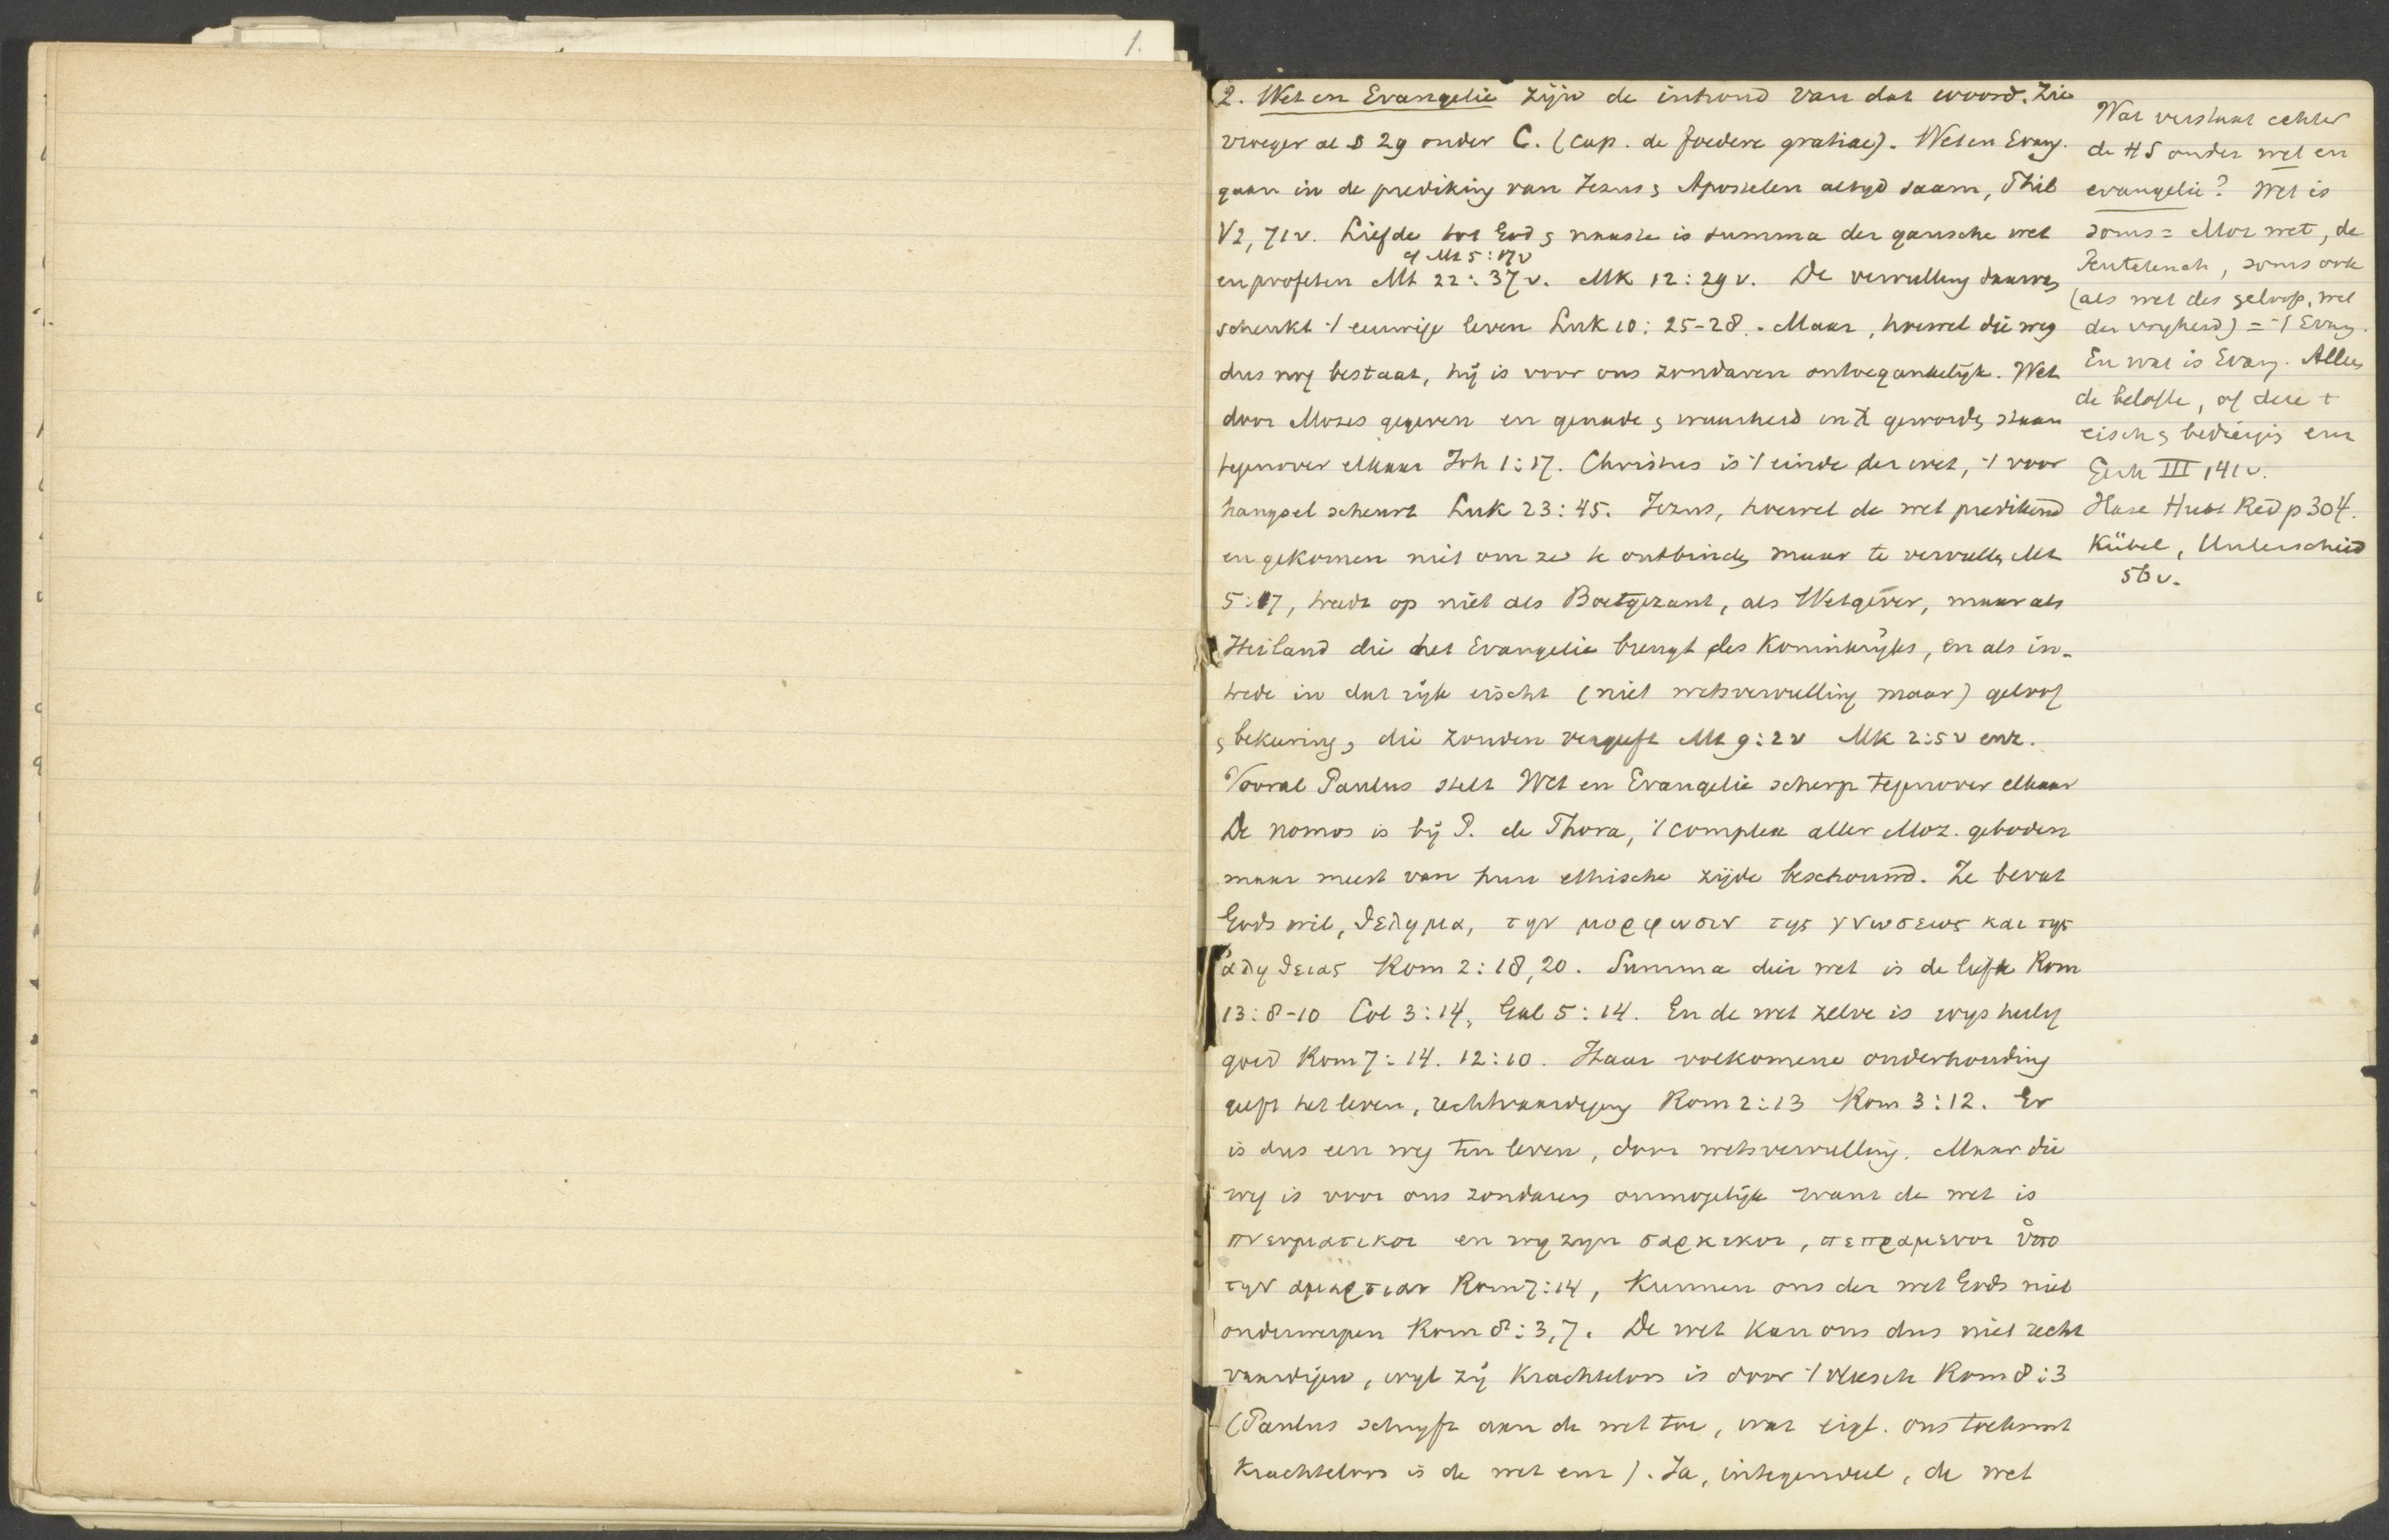 1.
2. Wet en Evangelie zijn de inhoud van dat woord. Zie
vroeger al § 29 onder C. (cap. de foedere gratiae). Wet en Evang.
gaan in de prediking van Jezus & Apostelen altyd saam, Phil
V2, 71v. Liefde tot God & naaste is summa der gansche wet
cf Mt 5:17v
en profeten Mt 22:37v. Mk 12:29v. De vervulling daarvan
schenkt 't eeuwige leven Luk 10:25-28. Maar, hoewel die weg
dus nog bestaat, hij is voor ons zondaren ontoegankelijk. Wet
door Mozes gegeven en genade & waarheid in X geworden staan
tegenover elkaar Joh 1:17. Christus is 't einde der wet, 't voor
hangsel scheurt Luk 23:45. Jezus, hoewel de wet predikend
en gekomen niet om ze te ontbinden maar te vervullen Mt
5:17, treedt op niet als Boetgezant, als Wetgever, maar als
Heiland die het Evangelie brengt des Koninkrijks, en als in-
trede in dat rijk eischt (niet wetsvervulling maar) geloof
& bekeering, die zonden vergeeft Mt 9:2v Mk 2:5v enz.
Vooral Paulus stelt Wet en Evangelie scherp tegenover elkaar
De nomos is bij P. de Thora, 't complex aller Moz. geboden
maar meest van hun ethische zijde beschouwd. Ze bevat
Gods wil, θελημα, την μορφωσιν της γνωσεως και της
ἀληθειας Rom 2:18,20. Summa dier wet is de liefde Rom
13:8-10 Col 3:14, Gal 5:14. En de wet zelve is wijs heilig
goed Rom 7:14. 12:10. Haar volkomene onderhouding
geeft het leven, rechtvaardiging Rom 2:13 Rom 3:12. Er
is dus een weg ten leven, door wetsvervulling. Maar die
weg is voor ons zondaren onmogelijk want de wet is
πνευματικοι en wij zijn σαρκικοι, πεπραμενοι ὑπο
την αμαρτιαν Rom 7:14, kunnen ons der wet Gods niet
onderwerpen Rom 8:3,7. De wet kan ons dus niet recht
vaardigen, wijl zij krachteloos is door 't vleesch Rom 8:3
(Paulus schrijft aan de wet toe, wat eigl. ons toekomt
krachteloos is de wet enz). Ja, integendeel, de wet
Wat verstaat echter
de HS onder wet en
evangelie? Wet is
soms = Moz wet, de
Pentateuch, soms ook
(als wet des geloofs, wet
der vrijheid) = 't Evang.
En wat is Evang. Alleen
de belofte, of deze +
eisch & bedreiging enz
Gerh III 141v.
Hase Hutt Red p 304.
Kübel, Unterscheid
56v.